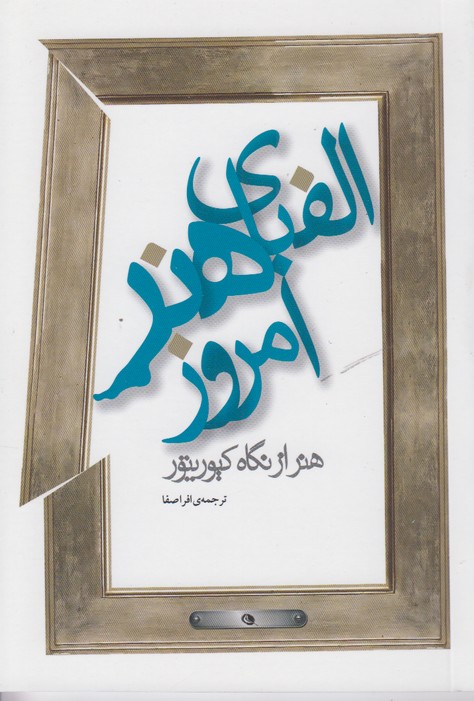 الفبای
هنر
امروز
هنر از نگاه کیوریتور
ترجمه‌ی افرا صفا